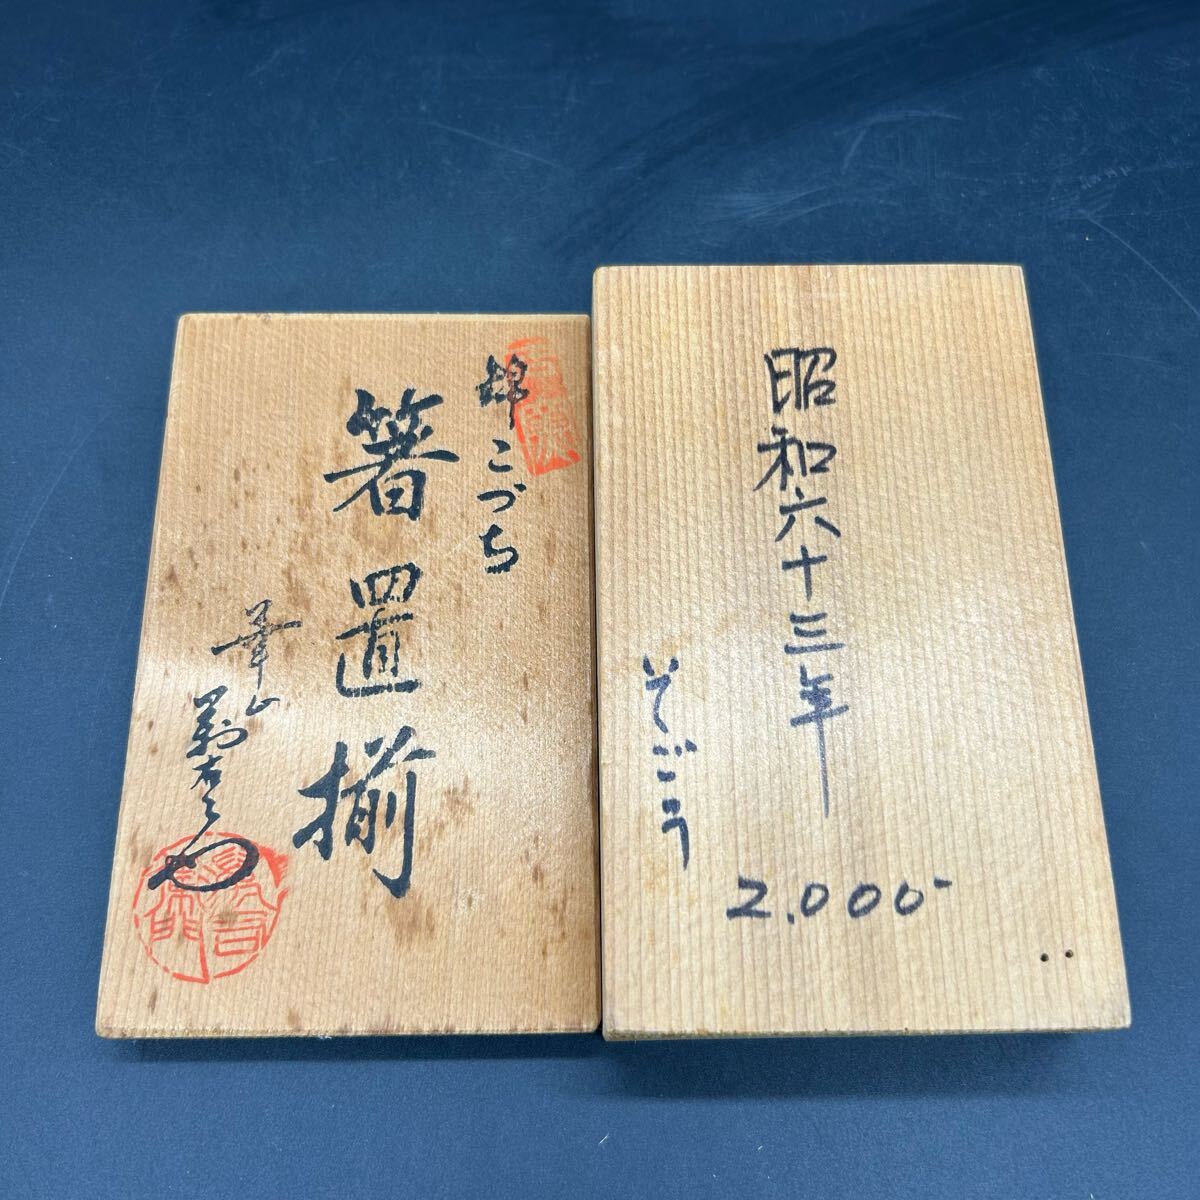 錦こづち
箸置揃
華山
昭和六十三年
そごう
2,000-